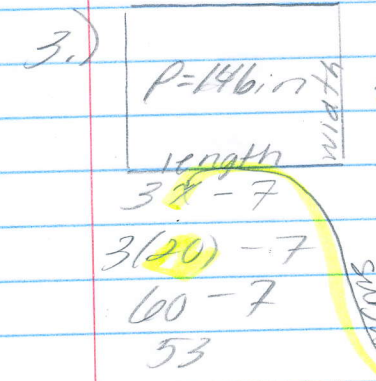 3.)
P=146in
width
length
3x - 7
3(20) - 7
60 - 7
53